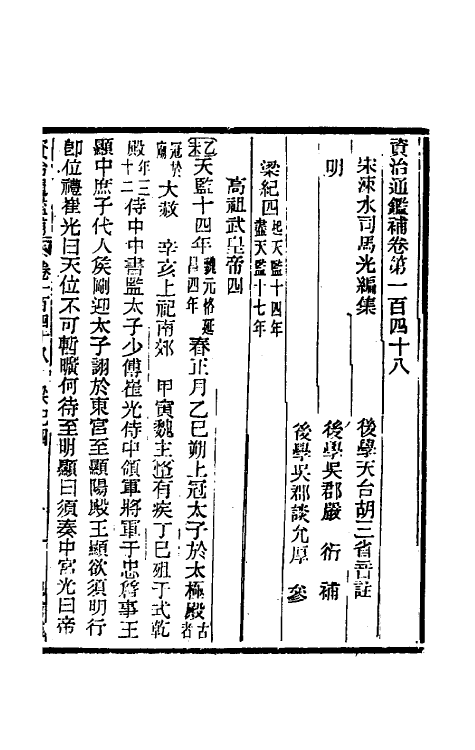 資治通鑑補卷第一百四十八
宋涑水司馬光編集 後學天台胡三省音註
明 後學吳郡嚴 衍 補
後學吳郡談允厚 參
梁紀四起天監十四年盡天監十七年
高祖武皇帝四
乙未天監十四年魏元恪延昌四年春正月乙巳朔上冠太子於太極殿古者
冠於廟大赦 辛亥上祀南郊 甲寅魏主恪有疾丁巳殂于式乾
殿年三十二侍中中書監太子少傅崔光侍中領軍將軍于忠詹事王
顯中庶子代人侯剛迎太子詡於東宮至顯陽殿王顯欲須明行
卽位禮崔光曰天位不可暫曠何待至明顯曰須奏中宮光曰帝